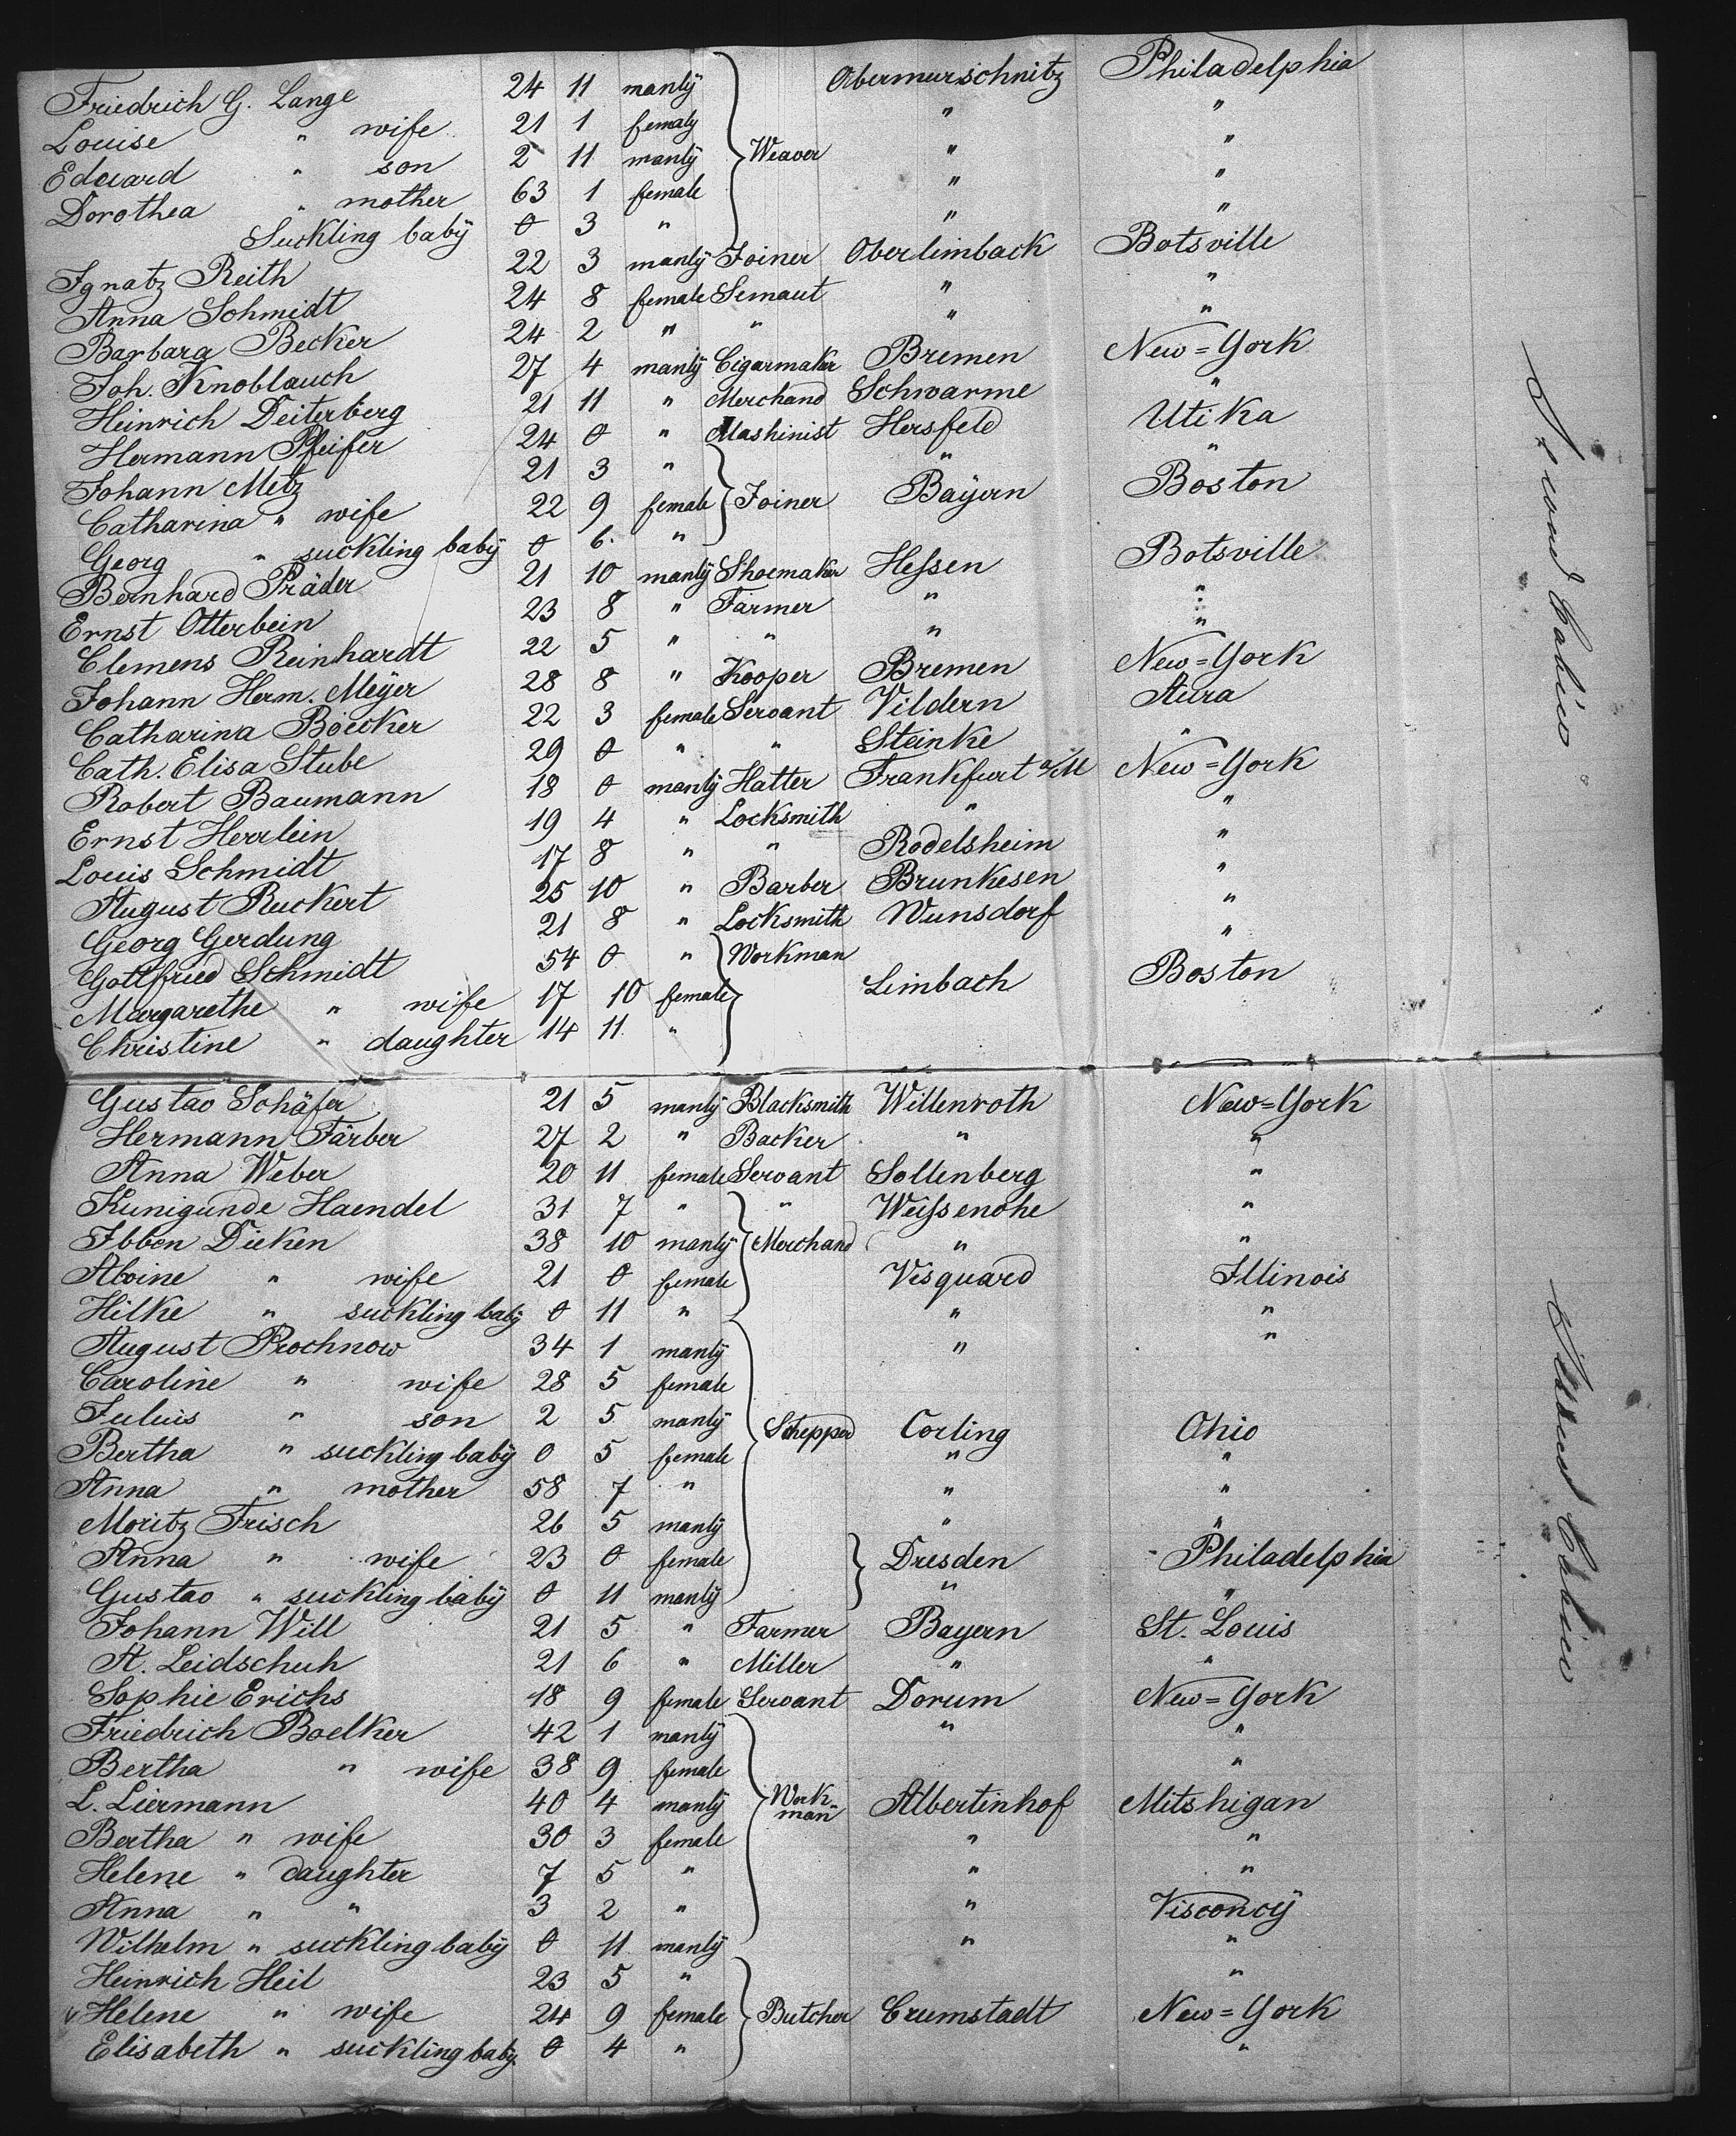 Friedrich G. Lange 24 11 manly Weaver Obermurschnitz Philadelphia
Louise " wife 21 1 femaly " "
Eduard " son 2 11 manly " "
Dorothea " mother 63 1 female " "
Suckling baby 0 3 " " "
Ignatz Reith 22 3 manly Joiner Oberlimback Botsville
Anna Schmidt 24 8 female Sernaut " "
Barbara Becker 24 2 " " " "
Joh. Knoblauch 27 4 manly Cigarmaker Bremen New=York
Heinrich Deiterberg 21 11 " Merchand Schwarme "
Hermann Pfeifer 24 0 " Mashinist Hersfeld Utika
Johann Metz 21 3 " " "
Catharina " wife 22 9 female Joiner Bayern Boston
Georg " suckling baby 0 6 "
Bernhard Präder 21 10 manly Shoemaker Hessen Botsville
Ernst Otterbein 23 8 " Farmer " "
Clemens Reinhardt 22 5 " " " "
Johann Herm. Meyer 28 8 " Kooper Bremen New=York
Catharina Böecker 22 3 female Servant Vildern Aura
Cath. Elisa Stube 29 0 " " Steinke "
Robert Baumann 18 0 manly Hatter Frankfurt a/M New=York
Ernst Herrlein 19 4 " Locksmith " "
Louis Schmidt 17 8 " " Rodelsheim "
August Ruckert 25 10 " Barber Brunkesen "
Georg Gerdung 21 8 " Locksmith Wunsdorf "
Gottfried Schmidt 54 0 " Workman "
Margarethe " wife 17 10 female Limbach Boston
Christine " daughter 14 11 "
Gustav Schäfer 21 5 manly Blacksmith Willenroth New=York
Hermann Färber 27 2 " Backer " "
Anna Weber 20 11 female Servant Sollenberg "
Kunigunde Haendel 31 7 " " Weissenohe "
Ibben Dieken 38 10 manly Merchand " "
Alvine " wife 21 0 female Visquard Illinois
Hilke " suckling baby 0 11 " " "
August Prochnow 34 1 manly " "
Caroline " wife 28 5 female
Julius " son 2 5 manly Schepperd Corling Ohio
Bertha " suckling baby 0 5 female " "
Anna " mother 58 7 " " "
Moritz Frisch 26 5 manly " "
Anna " wife 23 0 female Dresden Philadelphia
Gustav " suckling baby 0 11 manly " "
Johann Will 21 5 " Farmer Bayern St. Louis
A. Leidschuh 21 6 " Miller " "
Sophie Erichs 18 9 female Servant Dorum New=York
Friedrich Boelker 42 1 manly " "
Bertha " wife 38 9 female "
L. Liermann 40 4 manly Work-man Albertinhof Mitshigan
Bertha " wife 30 3 female " "
Helene " daughter 7 5 " " "
Anna " " 3 2 " " Visconcy
Wilhelm " suckling baby 0 11 manly " "
Heinrich Heil 23 5 " "
Helene " wife 24 9 female Butcher Crumstadt New=York
Elisabeth " suckling baby 0 4 " "
Second Cabin
Second Cabin